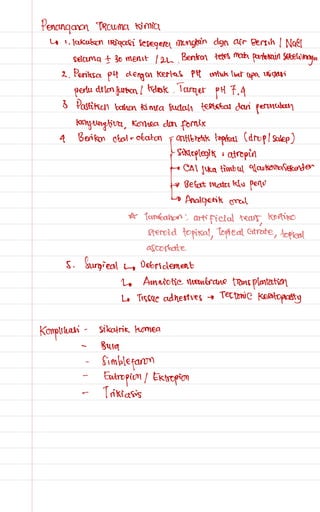 Penanganan Trauma kimia
↳ 1. lakukan irigasi sesegera mungkin dgn air Bersih / NaCl
selama ± 30 menit / 2L. Berikan tetes mata pantokain sebelumnya
2. Periksa pH dengan kertas PH untuk liat apa irigasi
perlu dilanjutkan / tidak. Target pH 7.4
3 Pastikan bahan kimia sudah terlepas dari permukaan
konjungtiva, kornea dan fornix
4 Berikan obat-obatan → antibiotik topikal (drop/salep)
→ Sikloplegik : atropin
→ CAI jika timbul glaukoma sekunder
→ Bebat mata klu perlu
→ Analgetik oral
☆ Tambahan : artificial tears, kortiko
steroid topikal, Topical citrate, topical
ascorbate
5. Surgical ↳ Debridement
↳ Amniotic membrane transplantation
↳ Tissue adhesives → Tectonic Keratoplasty
Komplikasi - Sikatrik kornea
- Buta
- Simblefaron
- Entropion / Ektropion
- Trikiasis